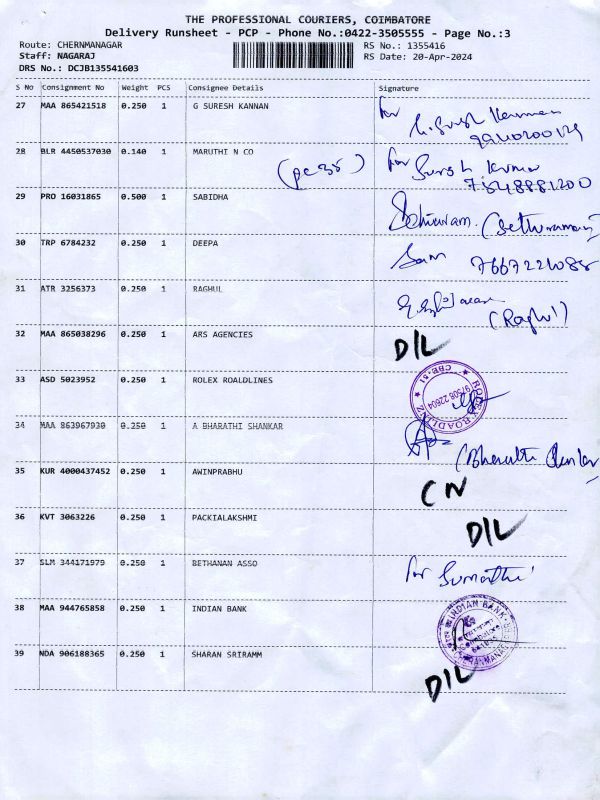 THE PROFESSIONAL COURIERS, COIMBATORE
Delivery Runsheet - PCP - Phone No.:0422-3505555 - Page No.:3
Route: CHERNMANAGAR
Staff: NAGARAJ
DRS No.: DCJB135541603
RS No.: 1355416
RS Date: 20-Apr-2024
S No Consignment No Weight PCS Consignee Details Signature
27 MAA 865421518 0.250 1 G SURESH KANNAN for G. Suresh Kannan
28 BLR 4450537030 0.140 1 MARUTHI N CO for Suresh Kumar
7548881200
29 PRO 16031865 0.500 1 SABIDHA (Sethuraman)
30 TRP 6784232 0.250 1 DEEPA
31 ATR 3256373 0.250 1 RAGHUL
(Raghul)
32 MAA 865038296 0.250 1 ARS AGENCIES D/L
33 ASD 5023952 0.250 1 ROLEX ROALDLINES ROLEX ROADLINES CBE-51 97508 22604
34 MAA 863967930 0.250 1 A BHARATHI SHANKAR (Bharathi
35 KUR 4000437452 0.250 1 AWINPRABHU CN
36 KVT 3063226 0.250 1 PACKIALAKSHMI D/L
37 SLM 344171979 0.250 1 BETHANAN ASSO for Sumathi
38 MAA 944765858 0.250 1 INDIAN BANK INDIAN BANK
39 NDA 906188365 0.250 1 SHARAN SRIRAMM D/L